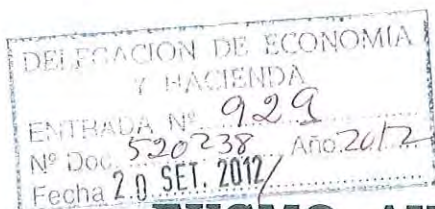 DELEGACION DE ECONOMIA
Y HACIENDA
ENTRADA Nº 929
Nº Doc. 520238 Año 2012
Fecha 20 SET. 2012